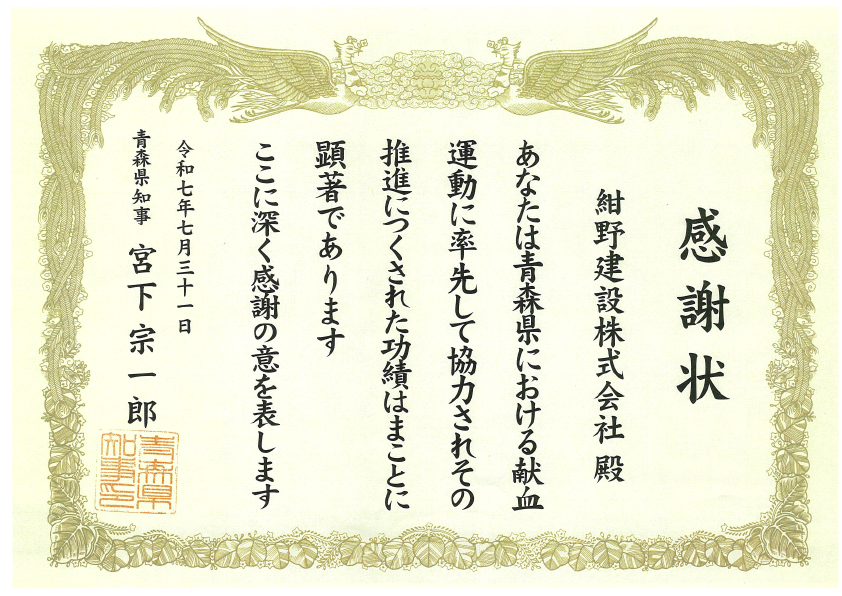 感謝状
紺野建設株式会社 殿
あなたは青森県における献血
運動に率先して協力されその
推進につくされた功績はまことに
顕著であります
ここに深く感謝の意を表します
令和七年七月三十一日
青森県知事 宮下宗一郎
青森県
知事印